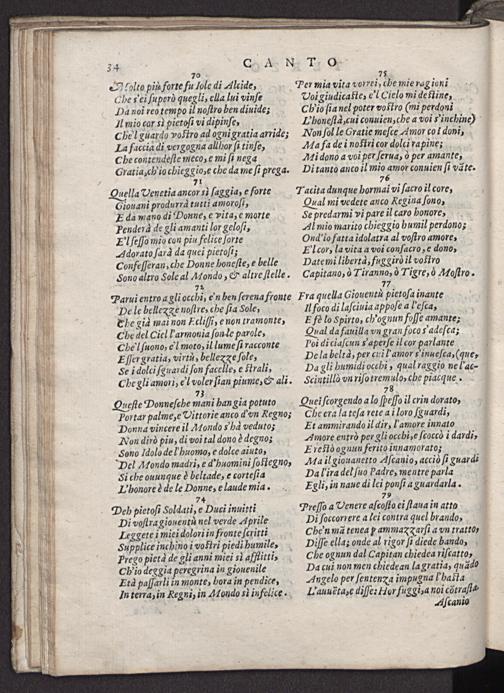 34
CANTO
70
Molto più forte fu Iole di Alcide,
Che s'ei superò quegli, ella lui vinse
Da noi reo tempo il nostro ben diuide;
Il mio cor sì pietosi vi dipinse,
Che'l guardo vostro ad ogni gratia arride;
La faccia di vergogna allhor si tinse,
Che contendeste meco, e mi si nega
Gratia, ch'io chieggio, e che da me si prega.
71
Quella Venetia ancor sì saggia, e forte
Giouani produrrà tutti amorosi,
E da mano di Donne, e vita, e morte
Penderà de gli amanti lor gelosi,
E'l sesso mio con più felice sorte
Adorato sarà da quei pietosi;
Confesseran, che Donne honeste, e belle
Sono altro Sole al Mondo, & altre stelle.
72
Parui entro a gli occhi, e'n ben serena fronte
De le bellezze nostre, che sia Sole,
Che già mai non Eclissi, e non tramonte,
Che del Ciel l'armonia son le parole,
Che'l suono, e'l moto, il lume si racconte
Esser gratia, virtù, bellezze sole,
Se i dolci sguardi son facelle, e strali,
Che gli amori, e'l voler sian piume, & ali.
73
Queste Donnesche mani han gia potuto
Portar palme, e Vittorie anco d'vn Regno;
Donna vincere il Mondo s'hà veduto;
Non dirò piu, di voi tal dono è degno;
Sono Idolo de l'huomo, e dolce aiuto,
Del Mondo madri, e d'huomini sostegno,
Si che ouunque è beltade, e cortesia
L'honore è de le Donne, e laude mia.
74
Deh pietosi Soldati, e Duci inuitti
Di vostra giouentù nel verde Aprile
Leggete i miei dolori in fronte scritti
Supplice inchino i vostri piedi humile,
Prego pietà de gli anni miei sì afflitti,
Ch'io deggia peregrina in giouenile
Età passarli in monte, hora in pendice,
In terra, in Regni, in Mondo sì infelice.
75
Per mia vita vorrei, che mie ragioni
Voi giudicaste, e'l Cielo mi destine,
Ch'io sia nel poter vostro (mi perdoni
L'honestà, cui conuien, che a voi s'inchine)
Non sol le Gratie mesce Amor co i doni,
Ma fa de i nostri cor dolci rapine;
Mi dono a voi per serua, ò per amante,
Di tanto anco il mio amor conuien si vāte.
76
Tacita dunque hormai vi sacro il core,
Qual mi vedete anco Regina sono,
Se predarmi vi pare il caro honore,
Al mio marito chieggio humil perdono;
Ond'io fatta idolatra al vostro amore,
E'l cor, la vita a voi consacro, e dono,
Date mi libertà, fuggirò il vostro
Capitano, ò Tiranno, ò Tigre, ò Mostro.
77
Fra quella Giouentù pietosa inante
Il foco di lasciuia appose a l'esca,
E fè lo Spirto, ch'ognun fosse amante;
Qual da fauilla vn gran foco s'adesca;
Poi di ciascun s'aperse il cor parlante
De la beltà, per cui l'amor s'inuesca, (que,
Da gli humidi occhi, qual raggio ne l'ac-
Scintillò vn riso tremulo, che piacque.
78
Quei scorgendo a lo spesso il crin dorato,
Che era la tesa rete a i loro sguardi,
Et ammirando il dir, l'amore innato
Amore entrò per gli occhi, e scoccò i dardi,
E restò ognun ferito innamorato;
Ma il giouanetto Ascanio, acciò si guardi
Da l'ira del suo Padre, mentre parla
Egli, in naue di lei ponsi a guardarla.
79
Presso a Venere ascosto ei staua in atto
Di soccorrere a lei contra quel brando,
Che'n mā tenea per ammazzarsi a vn tratto,
Disse ella; onde al rigor si diede bando,
Che ognun dal Capitan chiedea riscatto,
Da cui non men chiedean la gratia, quādo
Angelo per sentenza impugna l'hasta
L'auuēta, e disse: Hor fuggi, a noi cōtrasta
Ascanio